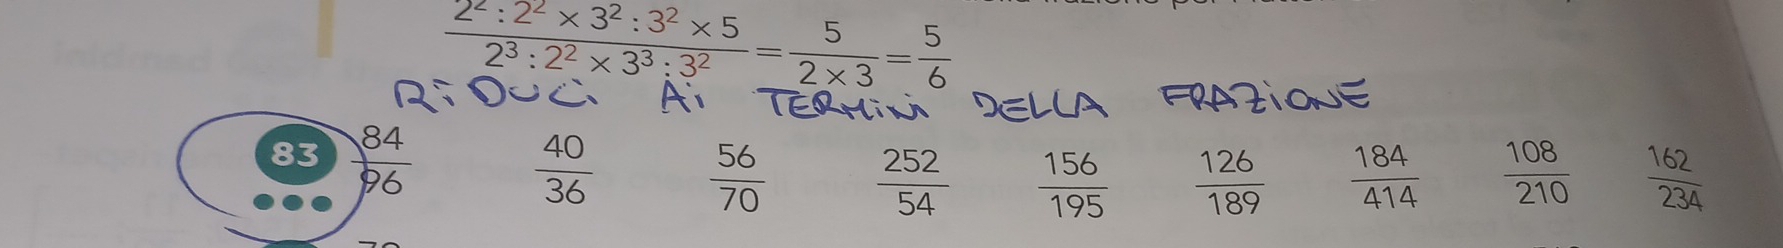 2² : 2² × 3² : 3² × 5 / 2³ : 2² × 3³ : 3² = 5 / 2 × 3 = 5/6
RiDUCi Ai TERMiNi DELLA FRAZiONE
83 84/96 40/36 56/70 252/54 156/195 126/189 184/414 108/210 162/234